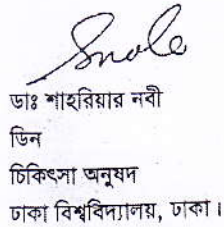 ডাঃ শাহরিয়ার নবী
ডিন
চিকিৎসা অনুষদ
ঢাকা বিশ্ববিদ্যালয়, ঢাকা।